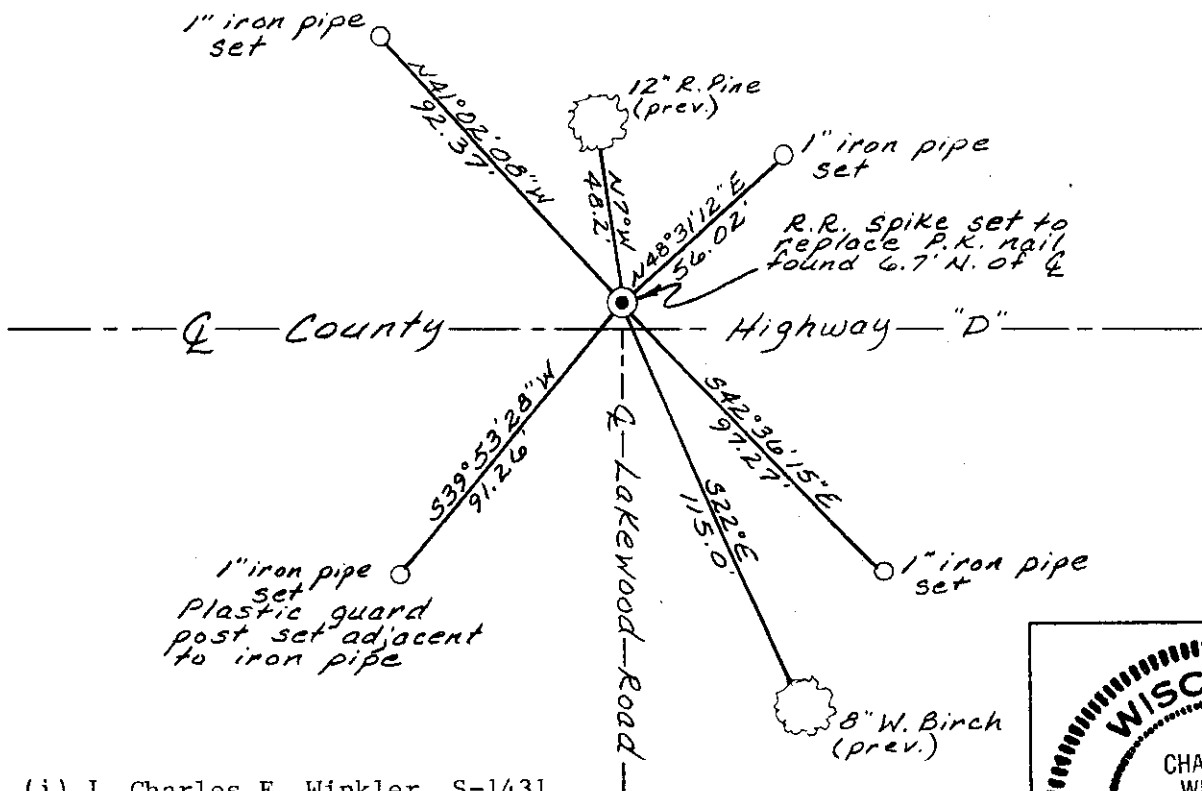 1" iron pipe
set
N41°02'08"W
92.37'
12" R. Pine
(prev.)
N7°W
48.2
1" iron pipe
set
N48°31'12"E
56.02'
R.R. spike set to
replace P.K. nail
found 6.7' N. of ℄
℄ County Highway "D"
S39°53'28"W
91.26'
1" iron pipe
set
Plastic guard
post set adjacent
to iron pipe
℄ Lakewood Road
S22°E
115.0'
S42°36'15"E
97.27'
1" iron pipe
set
8" W. Birch
(prev.)
WISC
CHA
W
(i) I, Charles E. Winkler, S-1431